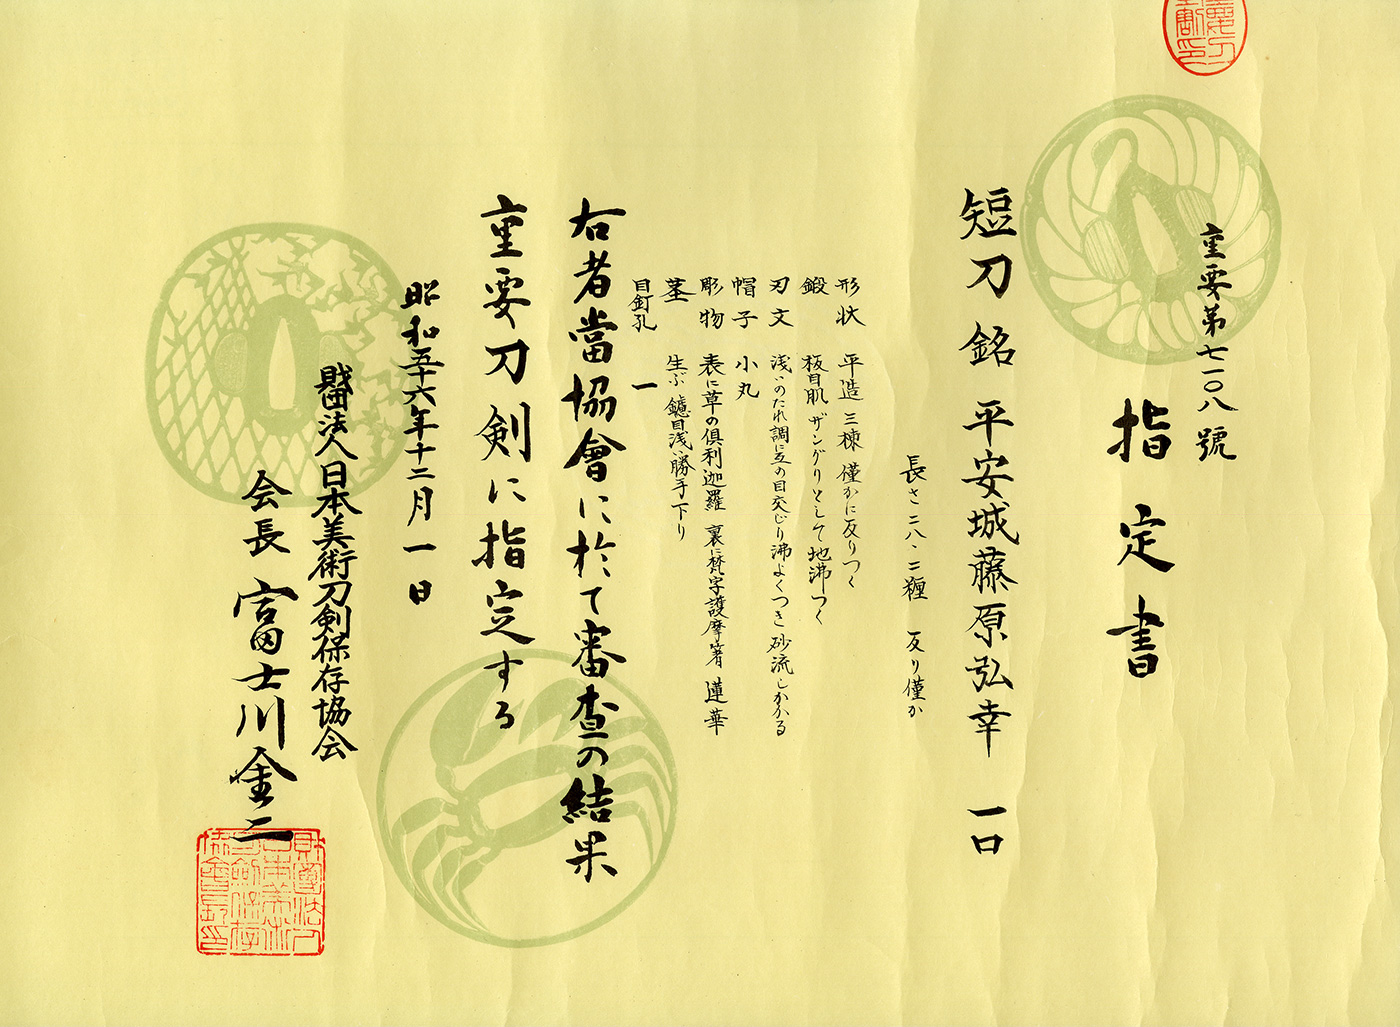 重要第七一〇八號
指定書
短刀 銘 平安城藤原弘幸 一口
長さ 二八・二糎 反り僅か
形状 平造 三棟 僅かに反りつく
鍛 板目肌 ザングリとして地沸つく
刃文 浅いのたれ調に互の目交じり沸よくつき 砂流しかかる
帽子 小丸
彫物 表に草の倶利迦羅 裏に梵字護摩箸 蓮華
茎 生ぶ 鑢目浅い勝手下り
目釘孔 一
右者當協會に於て審査の結果
重要刀剣に指定する
昭和五十六年十二月一日
財団法人日本美術刀剣保存協会
会長 富士川金二